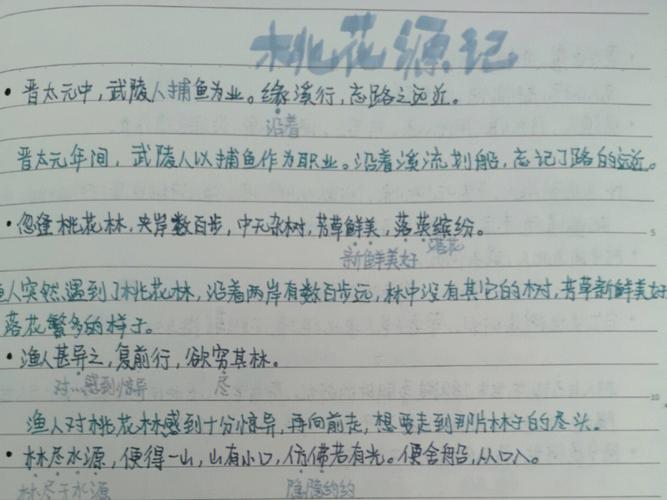 桃花源记
• 晋太元中，武陵人捕鱼为业。缘溪行，忘路之远近。
沿着
晋太元年间，武陵人以捕鱼作为职业。沿着溪流划船，忘记了路的远近。
• 忽逢桃花林，夹岸数百步，中无杂树，芳草鲜美，落英缤纷。
新鲜美好 落花
渔人突然遇到了桃花林，沿着两岸有数百步远，林中没有其它的树，芳草新鲜美好
落花繁多的样子。
• 渔人甚异之，复前行，欲穷其林。
对…感到惊异 尽
渔人对桃花林感到十分惊异，再向前走，想要走到那片林子的尽头。
• 林尽水源，便得一山，山有小口，仿佛若有光。便舍船，从口入。
林尽于水源 隐隐约约